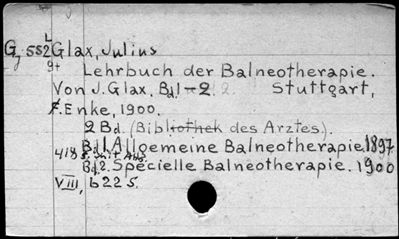 L
G 552 Glax, Julius
g+
Lehrbuch der Balneotherapie.
Von J. Glax. Bd. 1-2. 2. Stuttgart,
F. Enke, 1900.
2 Bd. (Bibliothek des Arztes).
Bd. 1. Allgemeine Balneotherapie. 1897
418 S. mit Abb.
Bd. 2. Specielle Balneotherapie. 1900
VIII, 622 S.